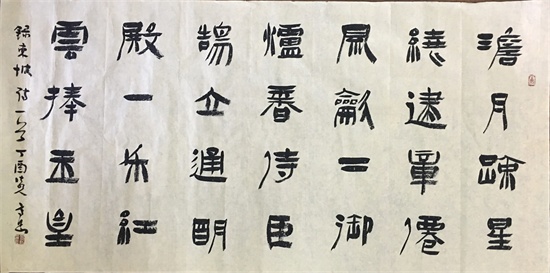 澹月疎星
繞建章僊
風龡下御
爐香侍臣
鵠立通明
殿一朵紅
雲捧玉皇
錄東坡詩一首丁酉